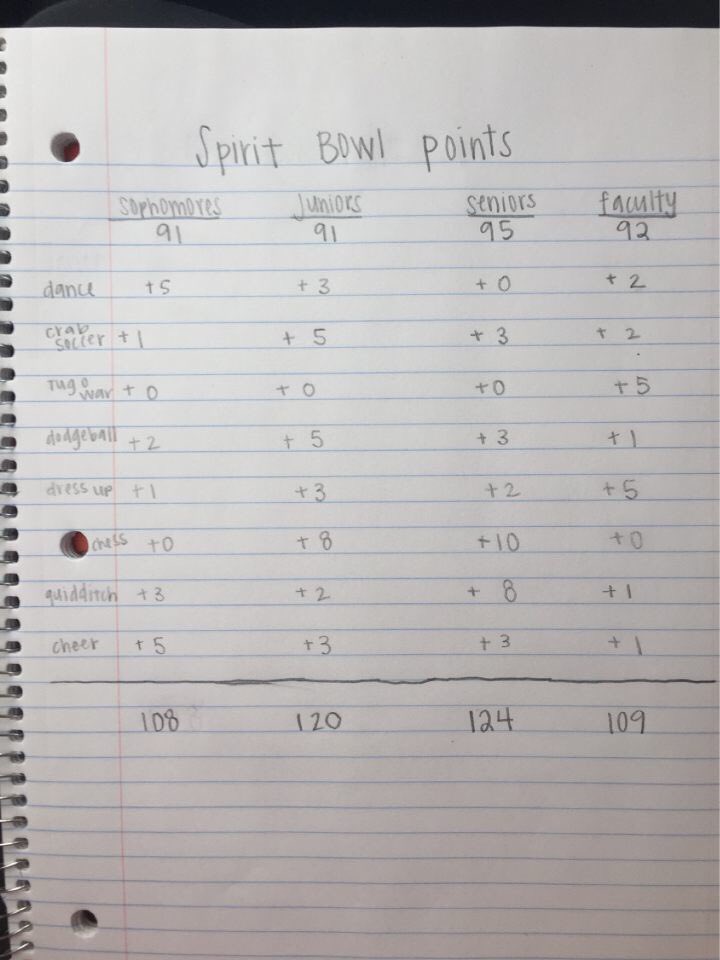 Spirit Bowl points
sophomores juniors seniors faculty
91 91 95 92
dance +5 +3 +0 +2
crab soccer +1 +5 +3 +2
Tug o war +0 +0 +0 +5
dodgeball +2 +5 +3 +1
dress up +1 +3 +2 +5
chess +0 +8 +10 +0
quidditch +3 +2 +8 +1
cheer +5 +3 +3 +1
108 120 124 109